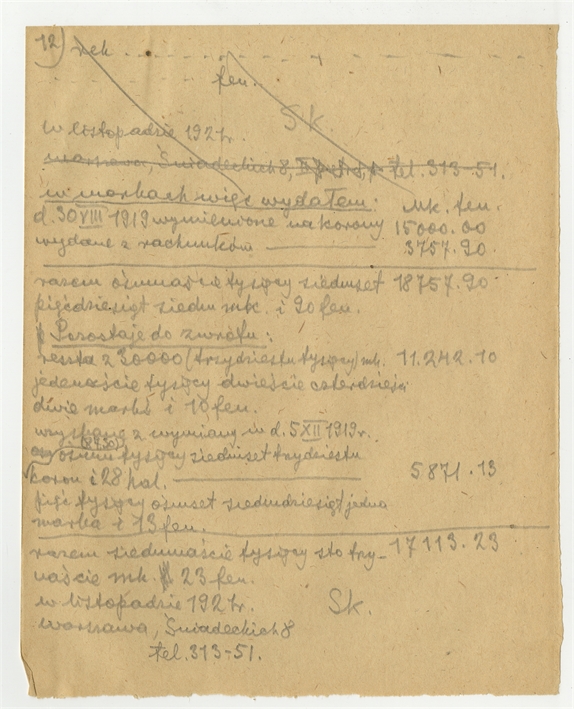 12)
fen.
Sk.
w listopadzie 1921r.
Warszawa, Śniadeckich 8, tel. 313-51.
w markach więc wydałem: mk. fen.
d. 30 VIII 1919 wymienione na korony 15000.00
wydane z rachunków 3757.90
razem ośmnaście tysięcy siedmset 18757.90
pięćdziesiąt siedm mk. i 90 fen.
Pozostaje do zwrotu:
reszta z 30000 (trzydziestu tysięcy) mk. 11.242.10
jedenaście tysięcy dwieście czterdzieści
dwie marki i 10 fen.
uzyskane z wymiany w d. 5 XII 1919r.
ośmiu tysięcy siedmset trzydziestu
koron i 28 hal. 5871.13
pięć tysięcy ośmset siedmdziesiąt jedna
marka i 13 fen.
razem siedmnaście tysięcy sto trzy- 17113.23
naście mk. 23 fen.
w listopadzie 1921r.
Sk.
Warszawa, Śniadeckich 8
tel. 313-51.